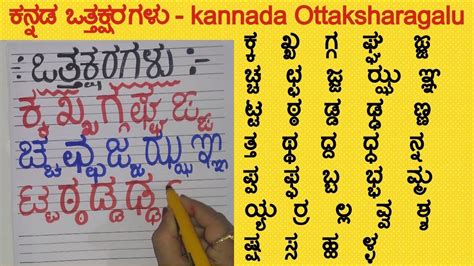 ಕನ್ನಡ ಒತ್ತಕ್ಷರಗಳು - kannada Ottaksharagalu
:ಒತ್ತಕ್ಷರಗಳು:
ಕ್ಕ ಖ್ಖ ಗ್ಗ ಘ್ಘ ಙ್ಙ
ಚ್ಚ ಛ್ಛ ಜ್ಜ ಝ್ಝ ಞ್ಞ
ಟ್ಟ ಠ್ಠ ಡ್ಡ ಢ್ಢ
ಕ್ಕ ಖ್ಖ ಗ್ಗ ಘ್ಘ ಙ್ಙ
ಚ್ಚ ಛ್ಛ ಜ್ಜ ಝ್ಝ ಞ್ಞ
ಟ್ಟ ಠ್ಠ ಡ್ಡ ಢ್ಢ ಣ್ಣ
ತ್ತ ಥ್ಥ ದ್ದ ಧ್ಧ ನ್ನ
ಪ್ಪ ಫ್ಫ ಬ್ಬ ಭ್ಭ ಮ್ಮ
ಯ್ಯ ರ್ರ ಲ್ಲ ವ್ವ ಶ್ಶ
ಷ್ಷ ಸ್ಸ ಹ್ಹ ಳ್ಳ